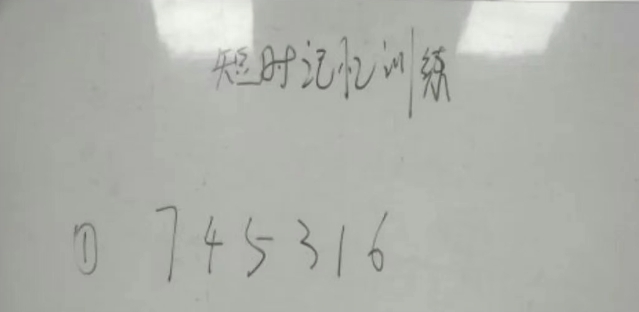 短时记忆训练
① 745316